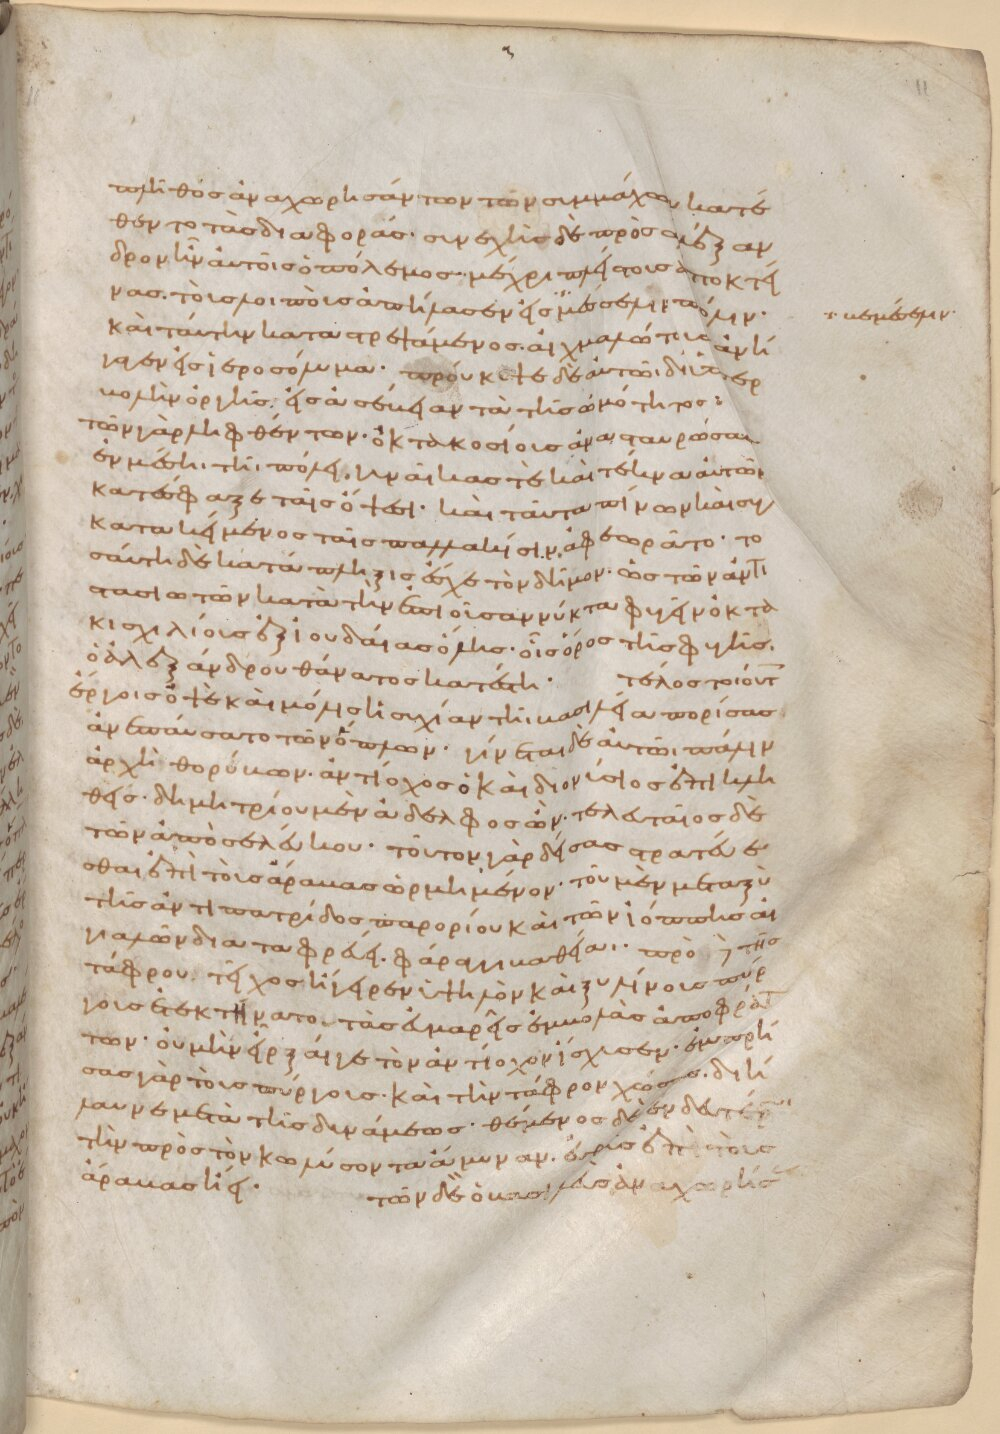 πλῆθος ἀναχωρησάντων τῶν συμμάχων κατέ
θεντο τὰς διαφοράς· συνεχὴς δὲ πρὸς ἀλέξαν
δρον ἦν ἀυτοῖς ὁ πόλεμος· μέχρι πλείστους ἀποκτεί
νας. τοὺς λοιποὺς ἀπήλασεν εἰς μεσεληνπόλιν·
καὶ ταύτην καταστρεψάμενος. αἰχμαλώτους ἀνή
γαγεν εἰς ἱεροσόλυμα· προύκοψε δὲ αὐτῶι δι ὑπερ
βολὴν ὀργῆς. εἰς ἀσέβειαν τὰ τῆς ὠμότητος:
τῶν γὰρ ληφθέντων· ὀκτακοσίους ἀνασταυρώσας
ἐν μέσηι τῆι πόλει. γυναῖκας τὲ καὶ τέκνα αὐτῶν
κατέσφαξε ταῖς ὄψεσι· καὶ ταῦτα πίνων καὶ συγ
κατακείμενος ταῖς παλλακίσιν, ἀφεωρᾶτο· το
σαύτη δὲ κατάπληξις ἔσχε τὸν δῆμον· ὡς τῶν ἀντι
στασιωτῶν κατὰ τὴν ἐπιοῦσαν νύκτα φυγεῖν ὀκτα
κισχιλίους ἔξω ἰουδαίας ὅλης· οἷς ὅρος τῆς φυγῆς.
ὁ ἀλεξάνδρου θάνατος κατέστη· τέλος τοιούτ
ἔργοις ὀψὲ καὶ μόλις ἡσυχίαν τῆι βασιλεία πορίσας
ἀνεπαύσατο τῶν ὅπλων· γίνεται δὲ αὐτῶι πάλιν
ἀρχὴ θορύβων. ἀντίοχος ὁ καὶ διονύσιος ἐπικλη
θείς· δημητρίου μὲν ἀδελφὸς ὢν· τελευταῖος δὲ
τῶν ἀπὸ σελεύκου· τοῦτον γὰρ δείσας στρατεύε
σθαι ἐπὶ τοὺς ἄραβας ὡρμημένον· τοῦ μὲν μεταξὺ
τῆς ἀντιπατρίδος παρορίου καὶ τῶν ἰόππης αἰ
γιαλῶν διαταφρεύει. φάραγγι βαθείαι· πρὸ δὲ τῆς
τάφρου. τεῖχος ἤγειρεν ὑψηλὸν καὶ ξυλίνους πύρ
γους ἐτεκτήνατο. τὰς εὐμαρεῖς ἐμβολὰς ἀποφράτ
των· οὐ μὴν εἶρξαί γε τὸν ἀντίοχον ἴσχυσεν· ἐμπρή
σας γὰρ τοὺς πύργους. καὶ τὴν τάφρον χώσας. διή
λαυνε μετὰ τῆς δυνάμεως· θέμενος δὲ ἐν δευτέρωι
τὴν πρὸς τὸν κωλύσοντα ἄμυναν. εὐθὺς ἐπὶ τοὺς
ἄραβας ἤει· τῶν δὲ ὁ βασιλεὺς ἀναχωρήσ